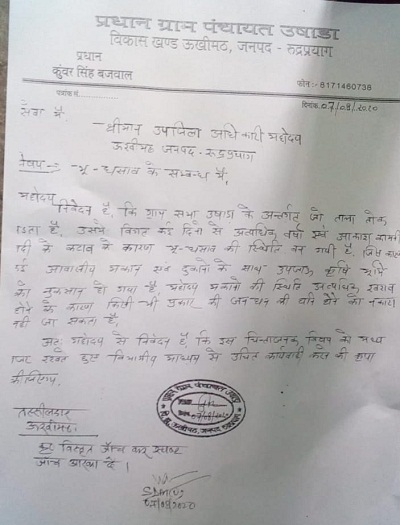 प्रधान ग्राम पंचायत उषाडा
विकास खण्ड ऊखीमठ, जनपद - रूद्रप्रयाग
प्रधान
कुंवर सिंह बजवाल
फोन :- 8171460738
पत्रांक सं.
दिनांक 07/08/2020
सेवा में,
श्रीमान उपजिला अधिकारी महोदय
ऊखीमठ जनपद - रूद्रप्रयाग
विषय - भू-धसाव के सम्बन्ध में,
महोदय
निवेदन है, कि ग्राम सभा उषाडा के अन्तर्गत जो ताला तोक
पडता है, उसमें विगत कई दिनों से अत्यधिक वर्षा एवं आकाश कामनी
नदी के कटाव के कारण भू-धसाव की स्थिति बन गयी है, जिस कारण
कई आवासीय मकान एवं दुकानों के साथ उपजाऊ कृषि भूमि
को नुकसान हो गया है महोदय मकानों की स्थिति अत्यधिक खराब
होने के कारण किसी भी प्रकार की जनधन की क्षति होने को नकारा
नहीं जा सकता है,
अतः महोदय से निवेदन है, कि इस चिन्ताजनक विषय को मध्य
नजर रखते हुए विभागीय माध्यम से उचित कार्यवाही करने की कृपा
कीजिएगा,
तहसीलदार
ऊखीमठ
कृ० विस्तृत जाँच कर स्पष्ट
जाँच आख्या दें।
07/08/2020